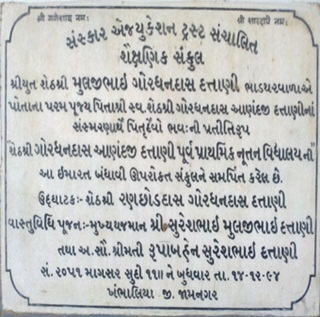 શ્રી ગણેશાય નમઃ શ્રી શારદાયૈ નમઃ
સંસ્કાર એજ્યુકેશન ટ્રસ્ટ સંચાલિત
શૈક્ષણિક સંકુલ
શ્રીયુત શેઠશ્રી મુલજીભાઇ ગોરધનદાસ દત્તાણી ભાડથરવાળાએ
પોતાના પરમ પૂજ્ય પિતાશ્રી સ્વ.શેઠશ્રી ગોરધનદાસ આણંદજી દત્તાણીનાં
સંસ્મરણાર્થે પિતૃદેવો ભવઃની પ્રતીતિરૂપ
"શેઠશ્રી ગોરધનદાસ આણંદજી દત્તાણી પૂર્વ પ્રાથમિક નૂતન વિદ્યાલય ની"
આ ઇમારત બંધાવી ઉપરોકત સંકુલને સમર્પિત કરેલ છે.
ઉદ્ઘાટકઃ- શેઠશ્રી રણછોડદાસ ગોરધનદાસ દત્તાણી
વાસ્તુવિધિ પૂજનઃ-મુખ્યયજમાન શ્રી સુરેશભાઇ મુલજીભાઇ દત્તાણી
તથા અ.સૌ.શ્રીમતી રૂપાબહેન સુરેશભાઇ દત્તાણી
સં. ૨૦૫૧ માગસર સુદી ૧૧॥ ને બુધવાર તા. ૧૪-૧૨-૯૪
ખંભાલિયા જી. જામનગર